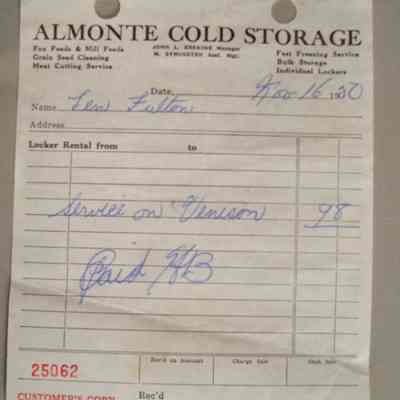 ALMONTE COLD STORAGE
Fox Feeds & Mill Feeds JOHN L. ERSKINE Manager Fast Freezing Service
Grain Seed Cleaning M. SYMINGTON Asst. Mgr. Bulk Storage
Meat Cutting Service Individual Lockers
Date, Nov 16 19
Name Len Fulton
Address
Locker Rental from to
Service on Venison 98
Paid
25062 Rec'd on Account Charge Sale Cash Sale
CUSTOMER'S COPY Rec'd